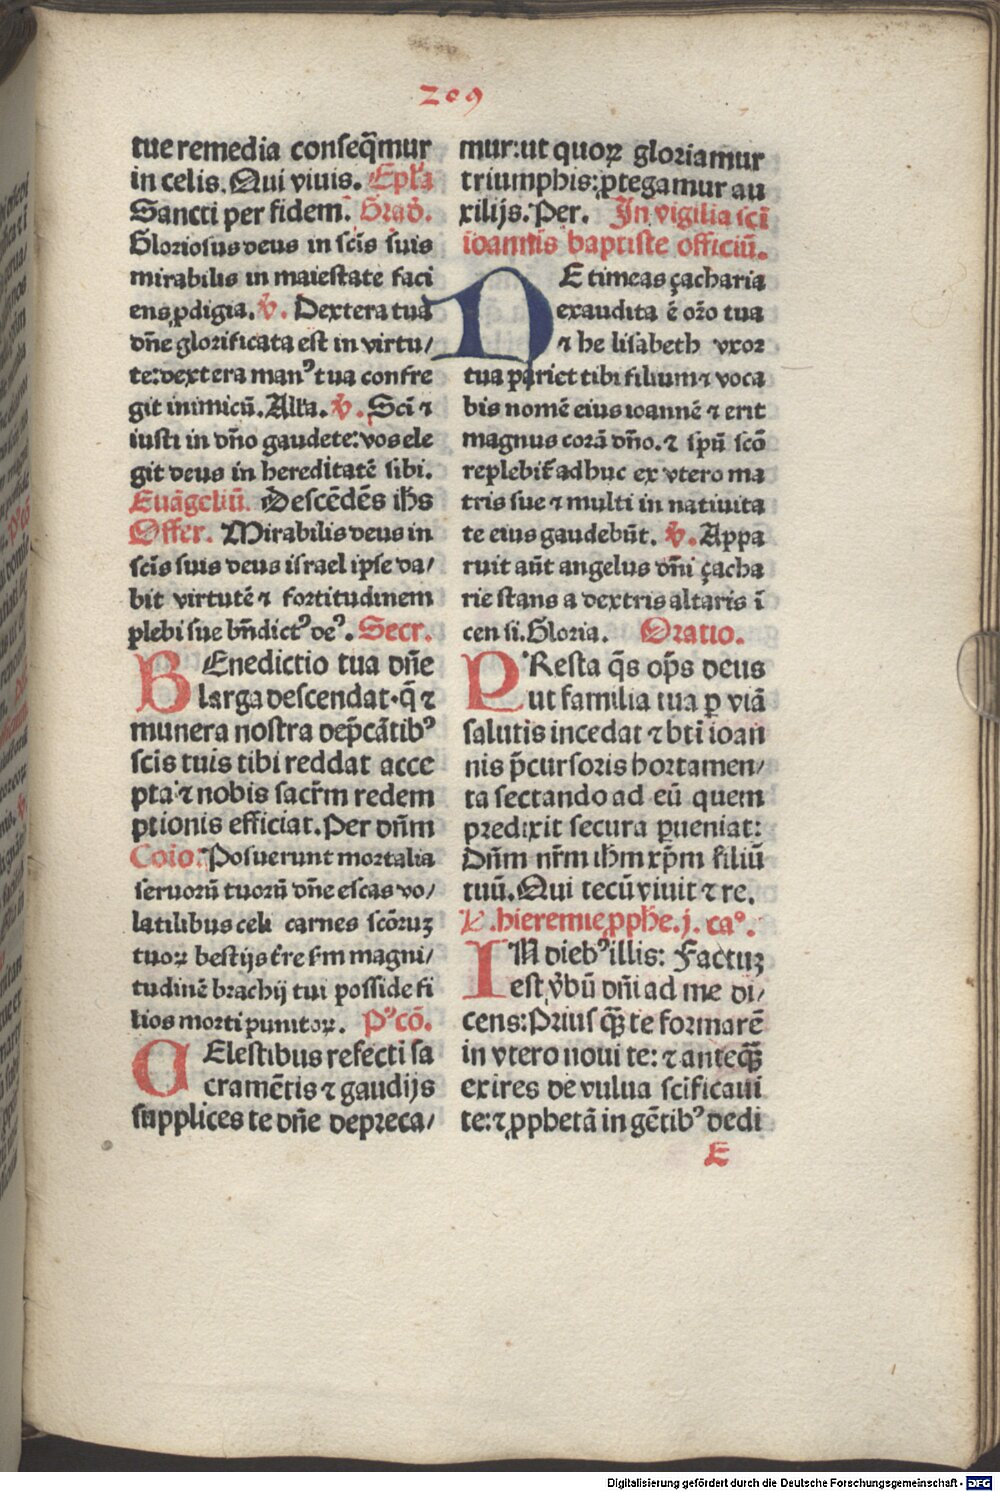 209
tue remedia conseq̃mur
in celis. Qui viuis. Ep̃la
Sancti per fidem. Grad̃.
Gloriosus deus in scĩs suis
mirabilis in maiestate faci
ens ꝓdigia. ℣. Dextera tua
dñe glorificata est in virtu/
te: dextera manꝰ tua confre
git inimicũ. All̃a. ℣. Scĩ ⁊
iusti in dño gaudete: vos ele
git deus in hereditatẽ sibi.
Euãgeliũ. Descẽdẽs ih̃s
Offer. Mirabilis deus in
scĩs suis deus israel ipse da/
bit virtutẽ ⁊ fortitudinem
plebi sue bñdictꝰ deꝰ. Secr.
BEnedictio tua dñe
larga descendat. q̃ ⁊
munera nostra dep̃cãtibꝰ
scĩs tuis tibi reddat acce
pta ⁊ nobis sacr̃m redem
ptionis efficiat. Per dñm
Cõio. Posuerunt mortalia
seruorũ tuorũ dñe escas vo/
latilibus celi carnes scõruʒ
tuoꝝ bestijs t̃re s̃m magni/
tudinẽ brachij tui posside fi
lios morti punitoꝝ. Pꝰcõ.
CElestibus refecti sa
cramẽtis ⁊ gaudijs
supplices te dñe depreca/
mur: ut quoꝝ gloriamur
triumphis: ꝓtegamur au
xilijs. Per. In vigilia scĩ
ioannis baptiste officiũ.
NE timeas çacharia
exaudita ẽ or̃o tua
⁊ helisabeth vxor
tua pariet tibi filium ⁊ voca
bis nomẽ eius ioannẽ ⁊ erit
magnus corã dño. ⁊ spũ scõ
replebit̃ adhuc ex vtero ma
tris sue ⁊ multi in natiuita
te eius gaudebũt. ℣. Appa
ruit aũt angelus dñi çacha
rie stans a dextris altaris ĩ
censi. Gloria. Oratio.
PResta q̃s op̃s deus
ut familia tua ꝑ viã
salutis incedat ⁊ bti ioan
nis p̃cursoris hortamen/
ta sectando ad eũ quem
predixit secura ꝑueniat:
Dñm nr̃m ih̃m xp̃m filiũ
tuũ. Qui tecũ viuit ⁊ re.
L. hieremie ꝓph̃e. j. caº.
IN diebꝰ illis: Factuʒ
est ṽbũ dñi ad me di/
cens: Priusq̃ȝ te formarẽ
in vtero noui te: ⁊ anteq̃ȝ
exires de vulua sc̃ificaui
te: ⁊ ꝓphetã in gẽtibꝰ dedi
E
Digitalisierung gefördert durch die Deutsche Forschungsgemeinschaft - DFG